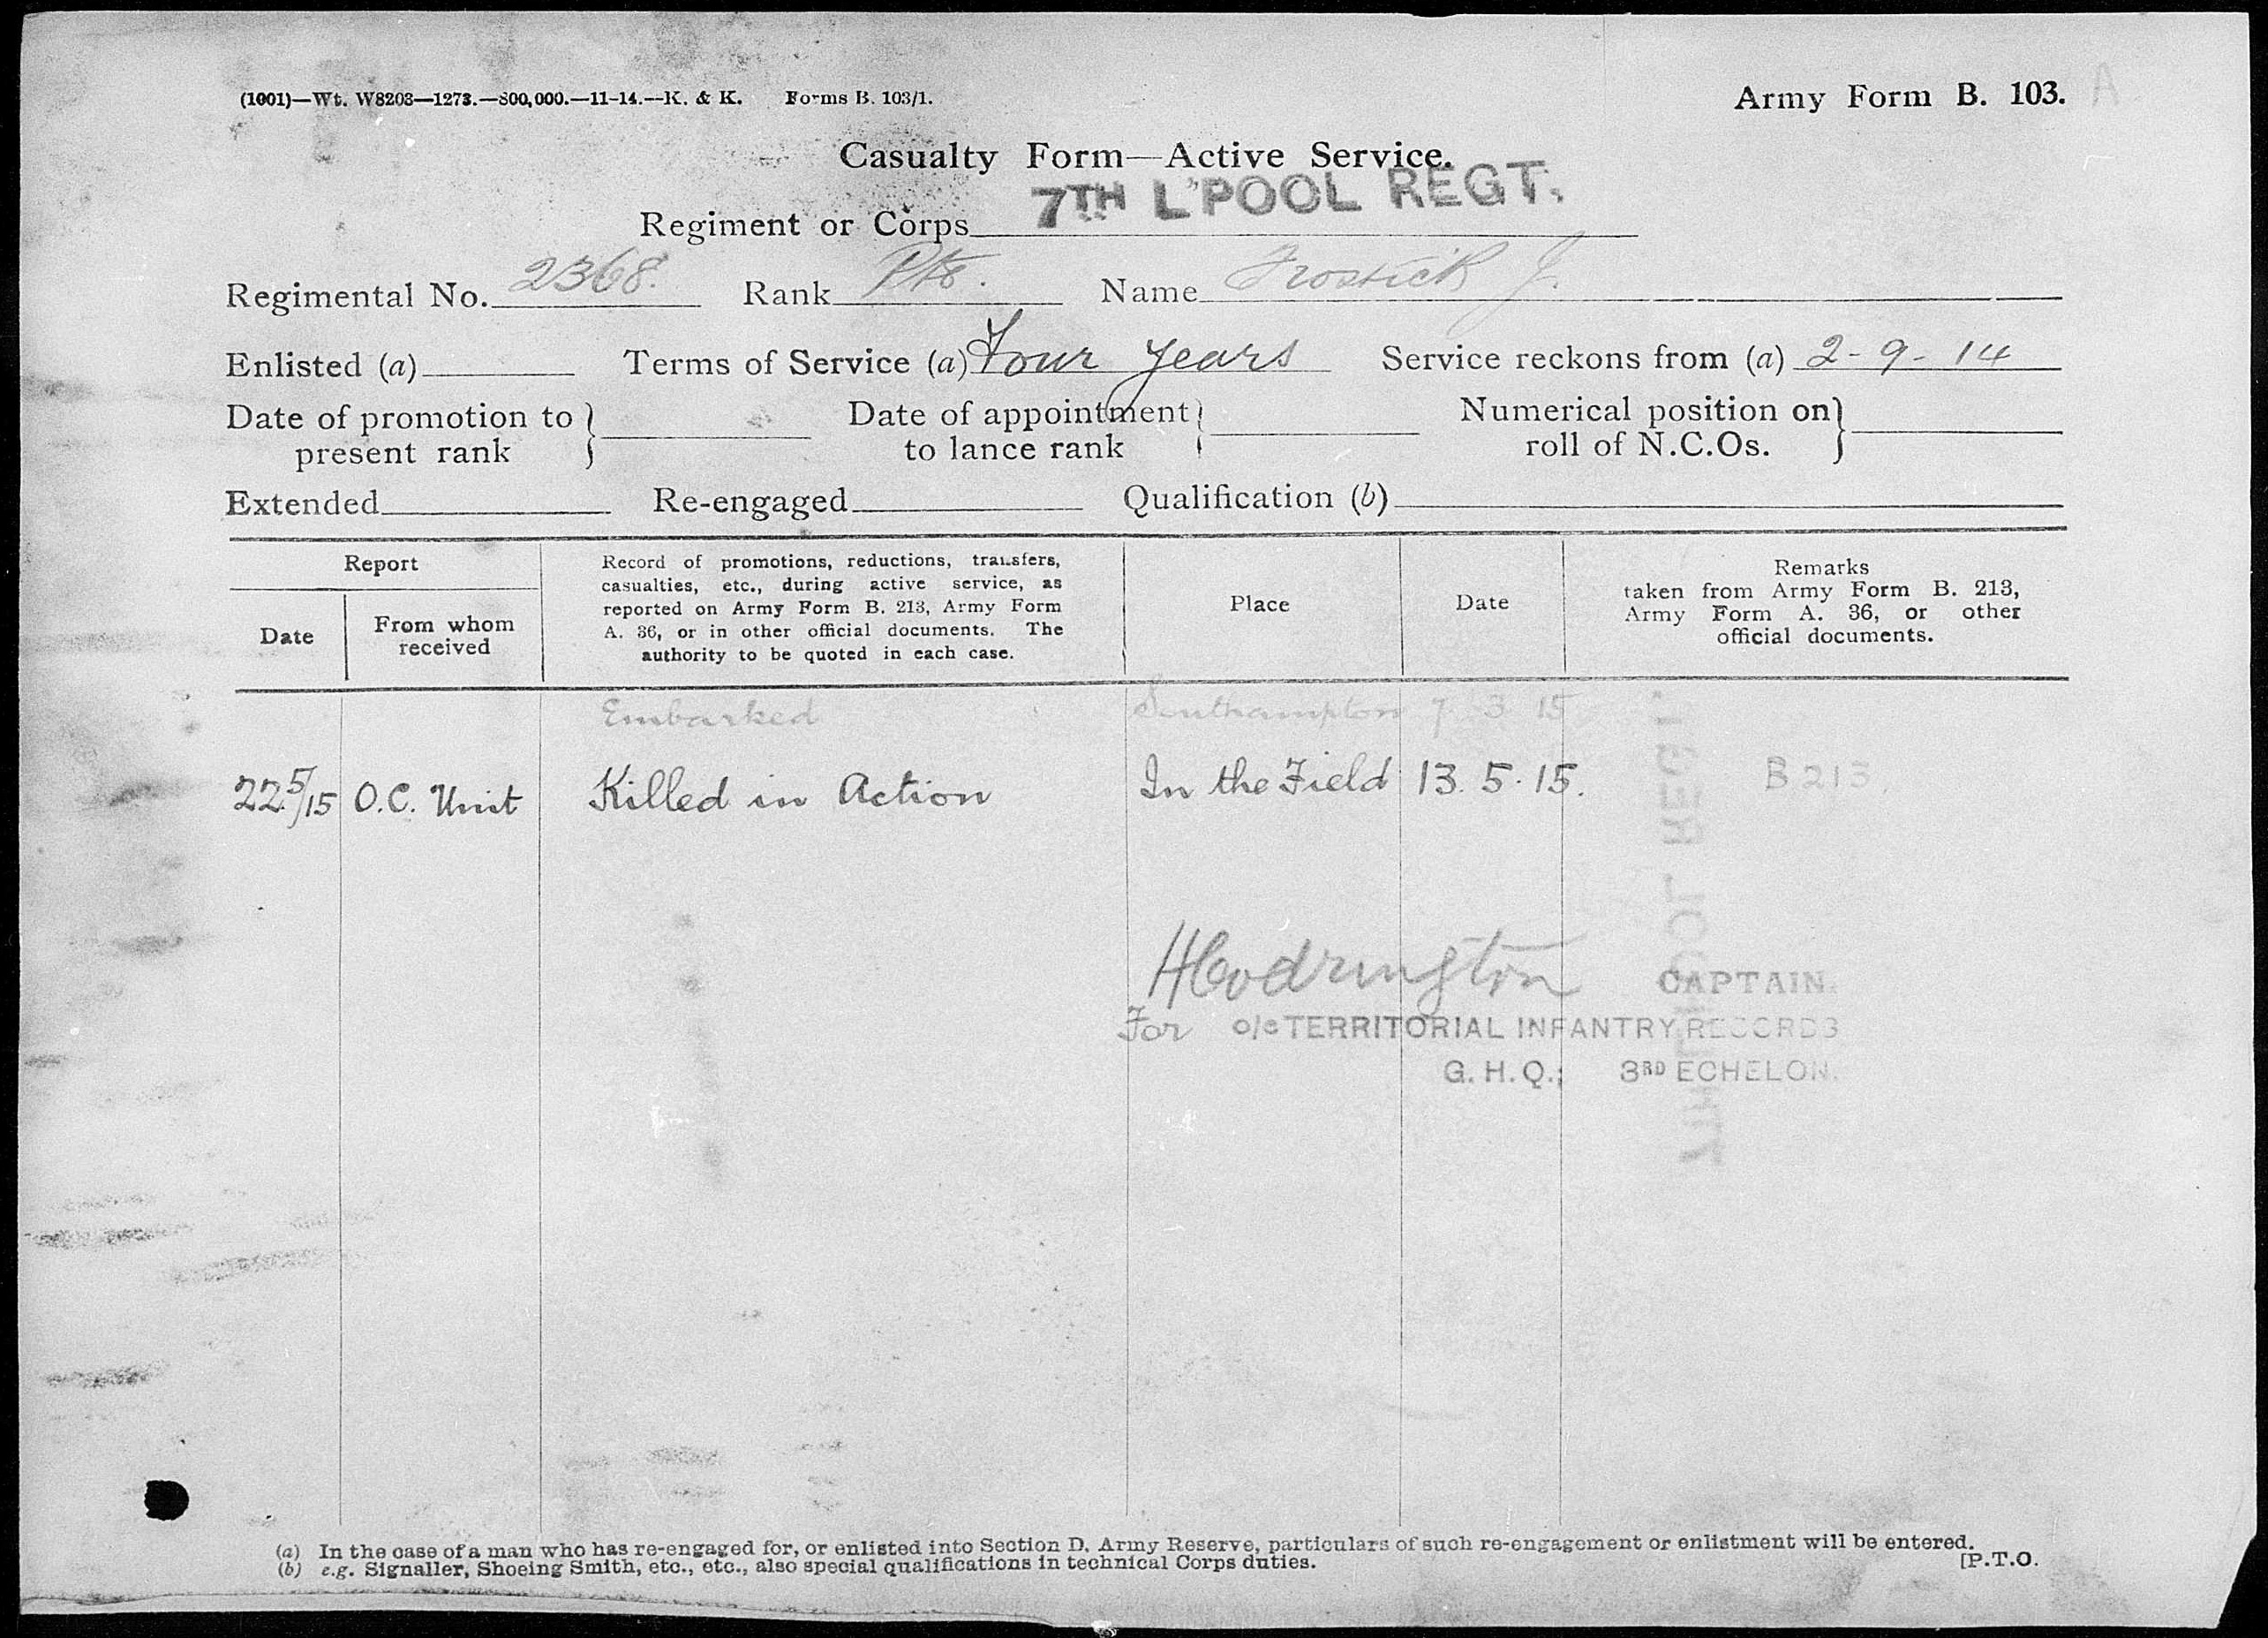 (1001)—Wt. W8203—1273.—800,000.—11-14.—K. & K. Forms B. 103/1.
Army Form B. 103.
A
Casualty Form—Active Service.
Regiment or Corps 7TH L'POOL REGT.
Regimental No. 2368. Rank Pte. Name Frostick J.
Enlisted (a) Terms of Service (a) Four years Service reckons from (a) 2-9-14
Date of promotion to present rank } Date of appointment to lance rank } Numerical position on roll of N.C.Os. }
Extended Re-engaged Qualification (b)
Report
Date
From whom received
Record of promotions, reductions, transfers,
casualties, etc., during active service, as
reported on Army Form B. 213, Army Form
A. 36, or in other official documents. The
authority to be quoted in each case.
Place
Date
Remarks
taken from Army Form B. 213,
Army Form A. 36, or other
official documents.
Embarked Southampton 7 3 15
22 5/15 O.C. Unit Killed in Action In the Field 13.5.15. B 213.
HCodrington CAPTAIN.
For o/c TERRITORIAL INFANTRY RECORDS
G.H.Q.; 3RD ECHELON.
7TH L'POOL REGT.
(a) In the case of a man who has re-engaged for, or enlisted into Section D, Army Reserve, particulars of such re-engagement or enlistment will be entered.
(b) e.g. Signaller, Shoeing Smith, etc., etc., also special qualifications in technical Corps duties.
[P.T.O.